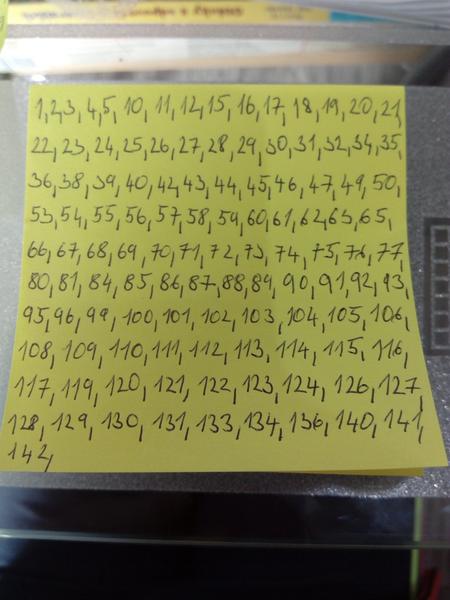 1,2,3,4,5,10,11,12,15,16,17,18,19,20,21,
22,23,24,25,26,27,28,29,30,31,32,34,35,
36,38,39,40,42,43,44,45,46,47,49,50,
53,54,55,56,57,58,59,60,61,62,63,65,
66,67,68,69,70,71,72,73,74,75,76,77,
80,81,84,85,86,87,88,89,90,91,92,93,
95,96,99,100,101,102,103,104,105,106,
108,109,110,111,112,113,114,115,116,
117,119,120,121,122,123,124,126,127,
128,129,130,131,133,134,136,140,141,
142,